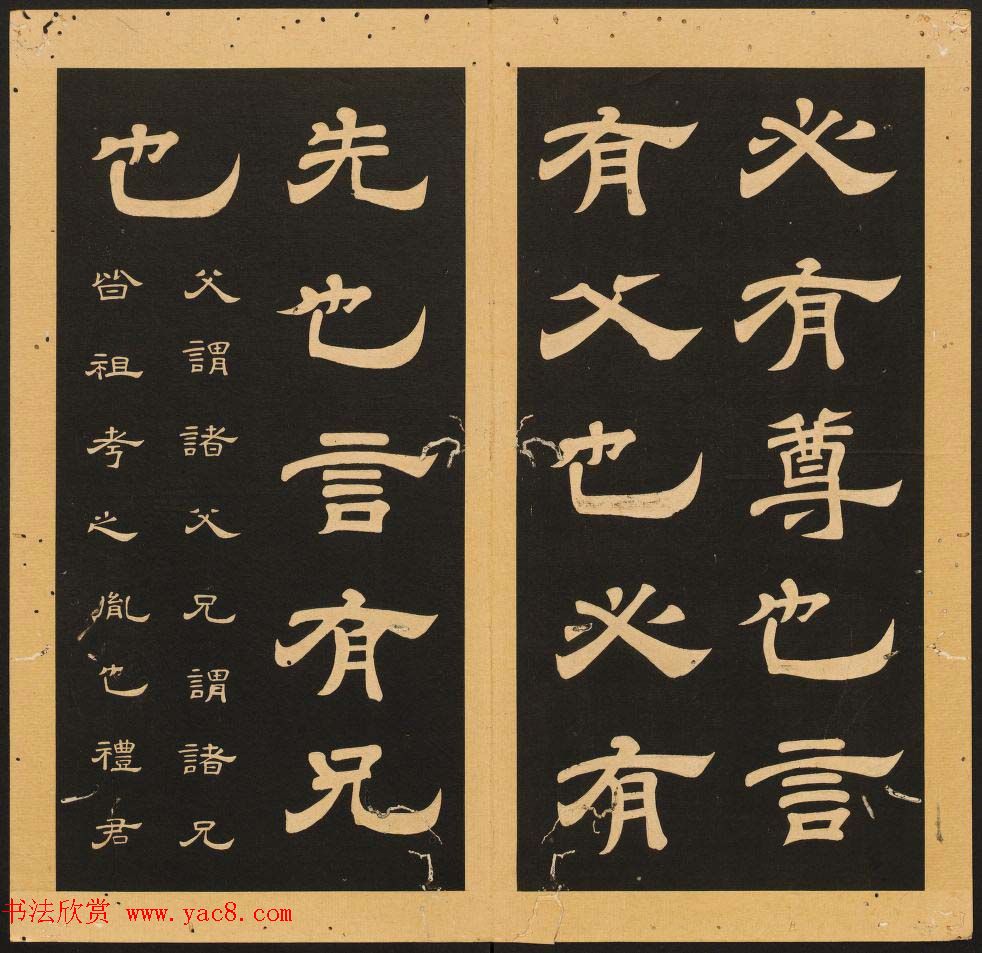 必有尊也言
有父也必有
先也言有兄
也
父謂諸父兄謂諸兄
皆祖考之胤也禮君
书法欣赏 www.yac8.com